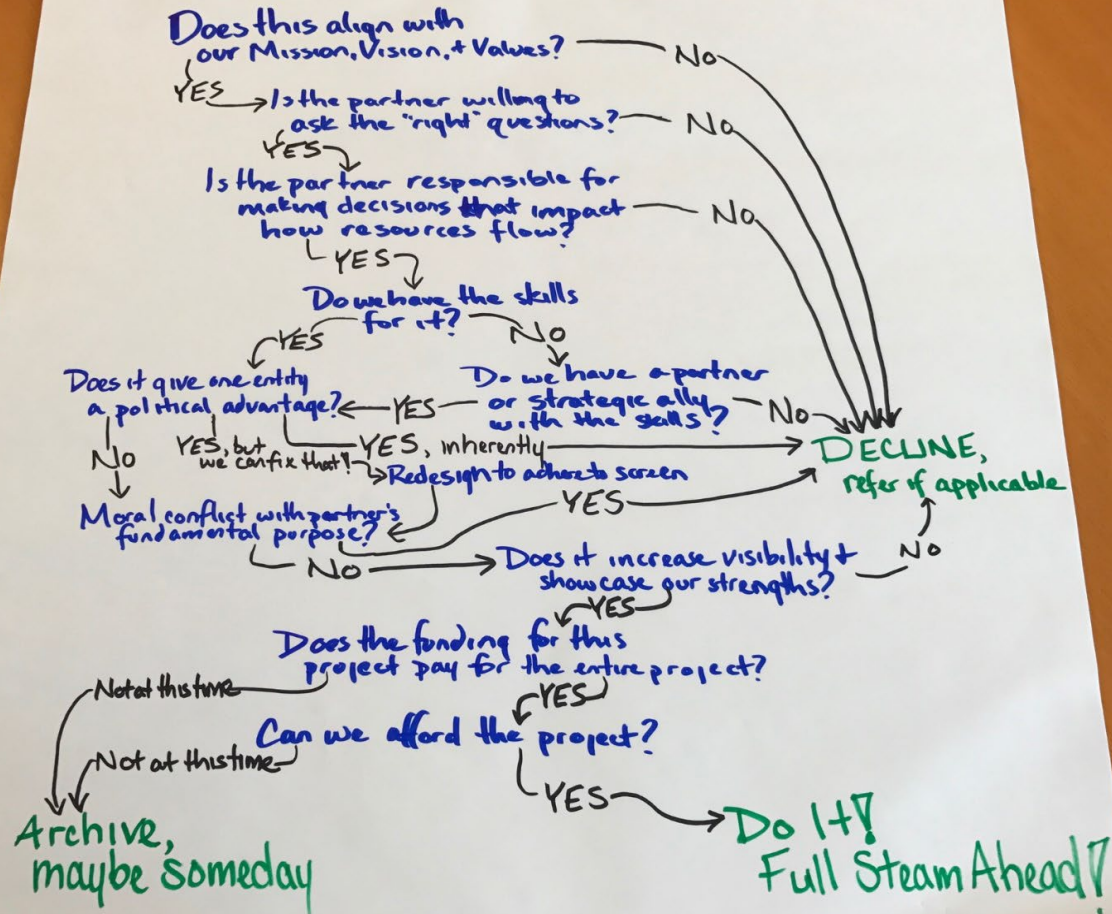 Does this align with
our Mission, Vision, + Values?
No
YES
Is the partner willing to
ask the "right" questions?
No
YES
Is the partner responsible for
making decisions that impact
how resources flow?
No
YES
Do we have the skills
for it?
YES
No
Does it give one entity
a political advantage?
YES
Do we have a partner
or strategic ally
with the skills?
No
No
YES, but
we can fix that!
YES, inherently
DECLINE,
refer if applicable
Redesign to adhere to screen
Moral conflict with partner's
fundamental purpose?
YES
No
Does it increase visibility +
showcase our strengths?
No
YES
Does the funding for this
project pay for the entire project?
Not at this time
YES
Can we afford the project?
Not at this time
YES
Archive,
maybe someday
Do It!
Full Steam Ahead!